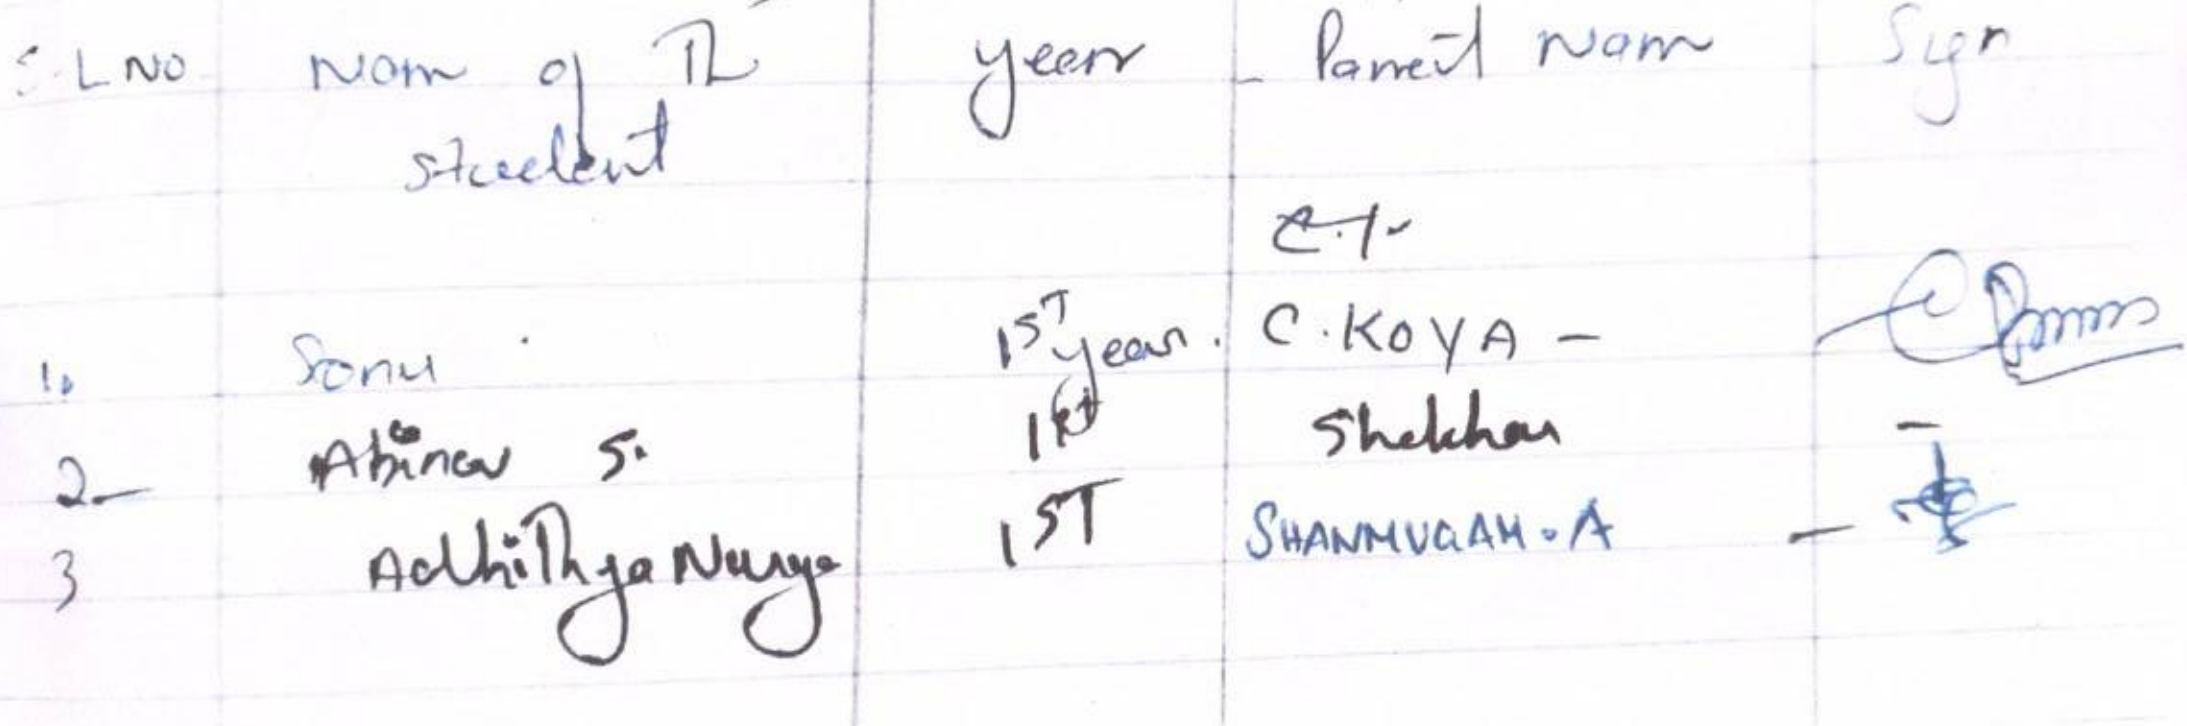 S.L NO Name of The year Parent Name Sign
student
1. Sonu 1ST year. C.KOYA -
2- Abinav S. 1st Shekhar -
3 Adhithya 1ST SHANMUGAM.A -